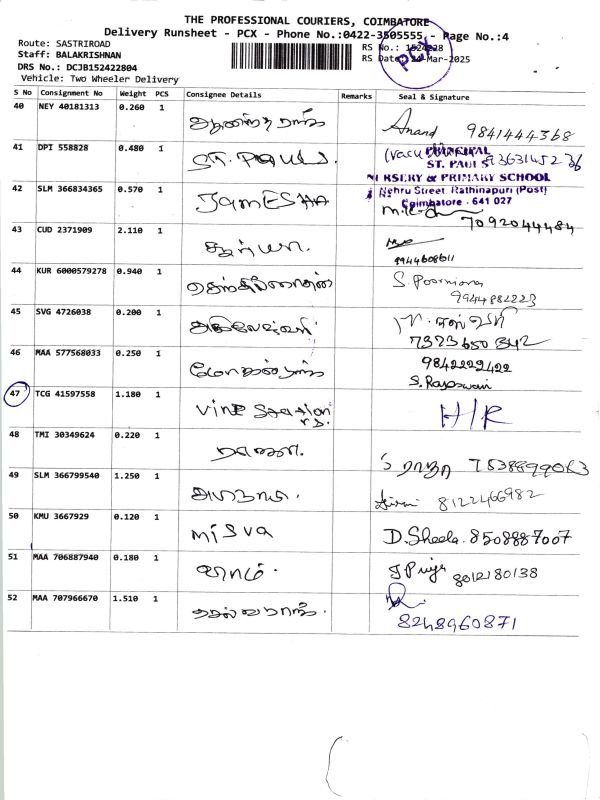 THE PROFESSIONAL COURIERS, COIMBATORE
Delivery Runsheet - PCX - Phone No.:0422-3505555 - Page No.:4
Route: SASTRIROAD
Staff: BALAKRISHNAN
DRS No.: DCJB152422804
Vehicle: Two Wheeler Delivery
RS No.:
RS Date: -Mar-2025
PCX
S No Consignment No Weight PCS Consignee Details Remarks Seal & Signature
40 NEY 40181313 0.260 1 Anand 9841444368
41 DPI 558828 0.480 1 ST. PAULS
PRINCIPAL
ST. PAUL'S
NURSERY & PRIMARY SCHOOL
Nehru Street, Rathinapuri (Post)
Coimbatore - 641 027
42 SLM 366834365 0.570 1 JAMESHA 7092044484
43 CUD 2371909 2.110 1 சூர்யா. 9944608611
44 KUR 6000579278 0.940 1 S. Poornima
9944882223
45 SVG 4726038 0.200 1 அகிலேஸ்வரி
7373650342
46 MAA 577568033 0.250 1 மோகன்ராஜ் 9842229422
S. Rajeswari
47 TCG 41597558 1.180 1 Vine Station H/R
48 TMI 30349624 0.220 1 ராஜா 7538899063
49 SLM 366799540 1.250 1 8122466982
50 KMU 3667929 0.120 1 Misva D. Sheela. 8508887007
51 MAA 706887940 0.180 1 ராம். J Priya 8012180138
52 MAA 707966670 1.510 1 செல்வராஜ்.
8248960871